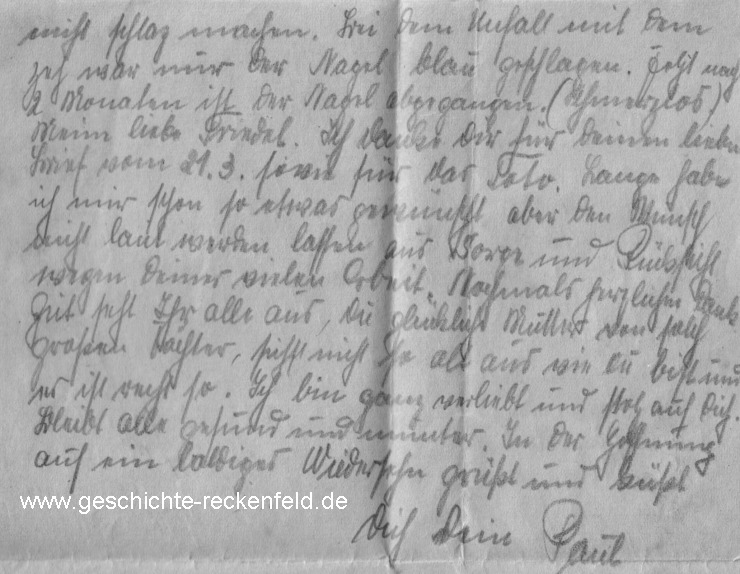 nicht schlapp machen. Bei dem Unfall mit dem
Zeh war nur der Nagel blau geschlagen. Jetzt nach
2 Monaten ist der Nagel abgegangen. (Schmerzlos)
Meine liebe Friedel. Ich danke Dir für Deinen lieben
Brief vom 21.3. sowie für das Foto. Lange habe
ich mir schon so etwas gewünscht aber den Wunsch
nicht laut werden lassen aus Sorge und Rücksicht
wegen Deiner vielen Arbeit. Nochmals herzlichen Dank
Gut seht Ihr alle aus, Du glückliche Mutter von solch
großen Töchter, siehst nicht so alt aus wie Du bist und
es ist recht so. Ich bin ganz verliebt und stolz auf Dich.
Bleibt alle gesund und munter. In der Hoffnung
auf ein baldiges Wiedersehn grüßt und küßt
www.geschichte-reckenfeld.de
Dich Dein Paul